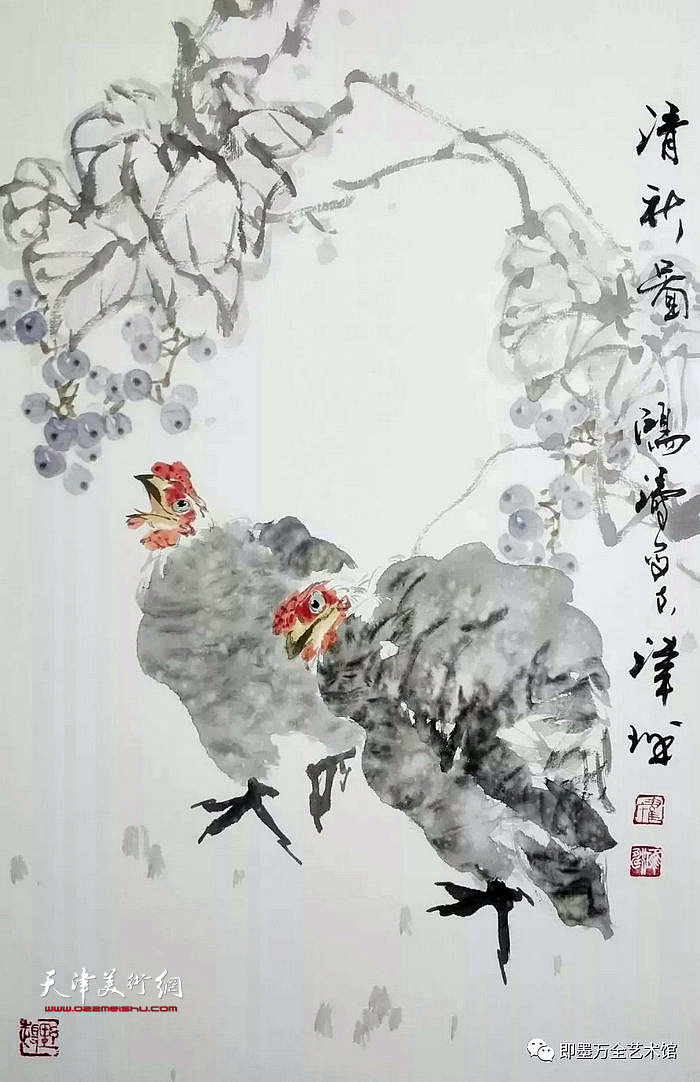 清秋图 鸿涛写于津城
天津美術網
www.022meishu.com
即墨万全艺术馆